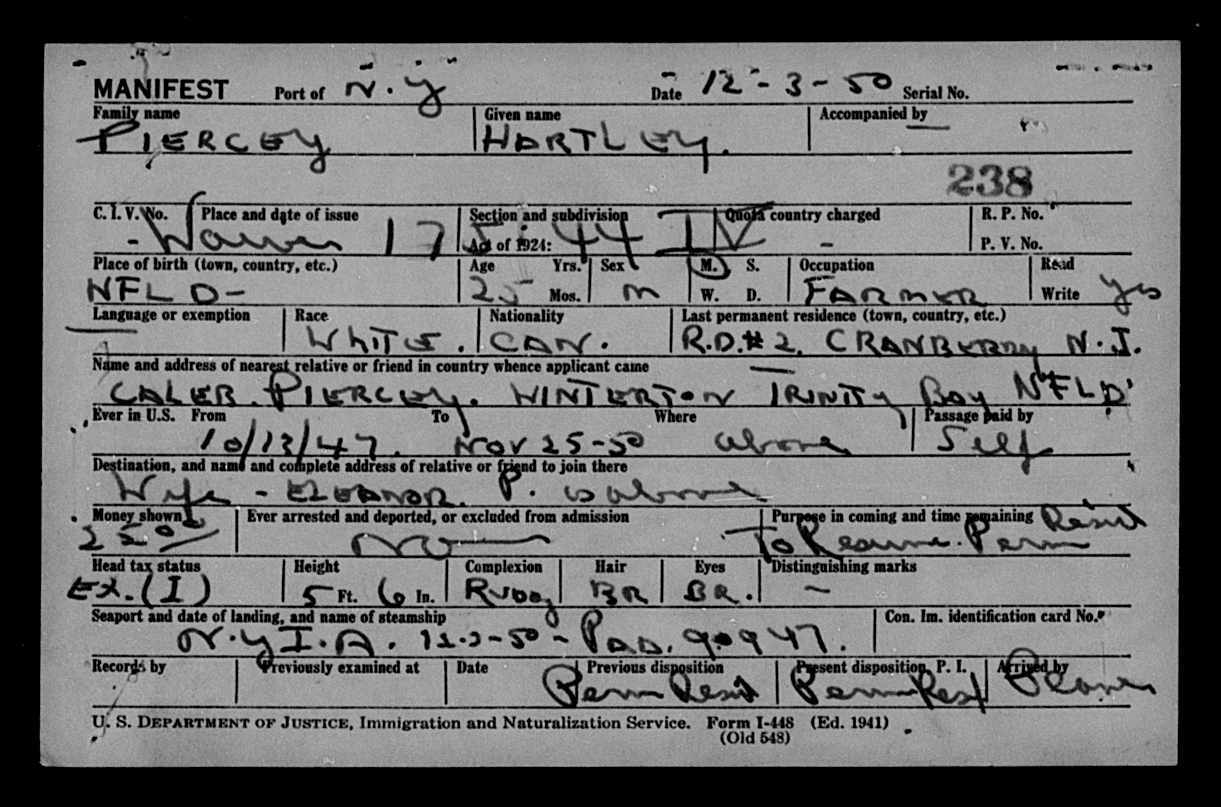 MANIFEST Port of N.Y Date 12-3-50 Serial No.
Family name Given name Accompanied by
PIERCEY HARTLEY. —
238
C. I. V. No. Place and date of issue Section and subdivision Quota country charged R. P. No.
- Waiver 175.44 Act of 1924: IV - P. V. No.
Place of birth (town, country, etc.) Age Yrs. Sex M. S. Occupation Read
NFLD- 25 Mos. M W. D. FARMER Write Yes
Language or exemption Race Nationality Last permanent residence (town, country, etc.)
— WHITE. CAN. R.D.#2, CRANBERRY N.J.
Name and address of nearest relative or friend in country whence applicant came
CALEB PIERCEY. WINTERTON TRINITY BAY NFLD
Ever in U.S. From To Where Passage paid by
10/13/47. NOV 25-50 above Self
Destination, and name and complete address of relative or friend to join there
Wife - ELEANOR P. as above
Money shown Ever arrested and deported, or excluded from admission Purpose in coming and time remaining
NO To Resume Perm Resid
Head tax status Height Complexion Hair Eyes Distinguishing marks
Ex. (I) 5 Ft. 6 In. Ruddy BR BR. -
Seaport and date of landing, and name of steamship Con. Im. identification card No.
N.Y.I.A. 12-3-50 - PAA. 90947.
Records by Previously examined at Date Previous disposition Present disposition, P. I. Arrived by
Perm Resid Perm Res Plane
U. S. DEPARTMENT OF JUSTICE, Immigration and Naturalization Service. Form I-448 (Ed. 1941)
(Old 548)